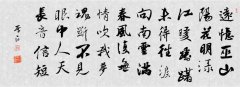 遥憶巫山
陽花明渌
江暖躊躇
未得往淚
向南雲滿
春風復無
情吹我夢
魂斷不見
眼中人天
長音信短